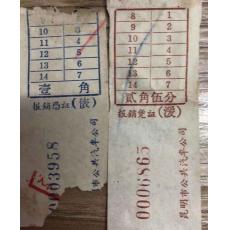 10 3
11 4
12 5
13 6
14 7
壹 角
报销凭证(俵)
0003958
昆明市公共汽車公司
8 1
9 2
10 3
11 4
12 5
13 6
14 7
貳角伍分
报销凭証
0006865
昆明市公共汽車公司